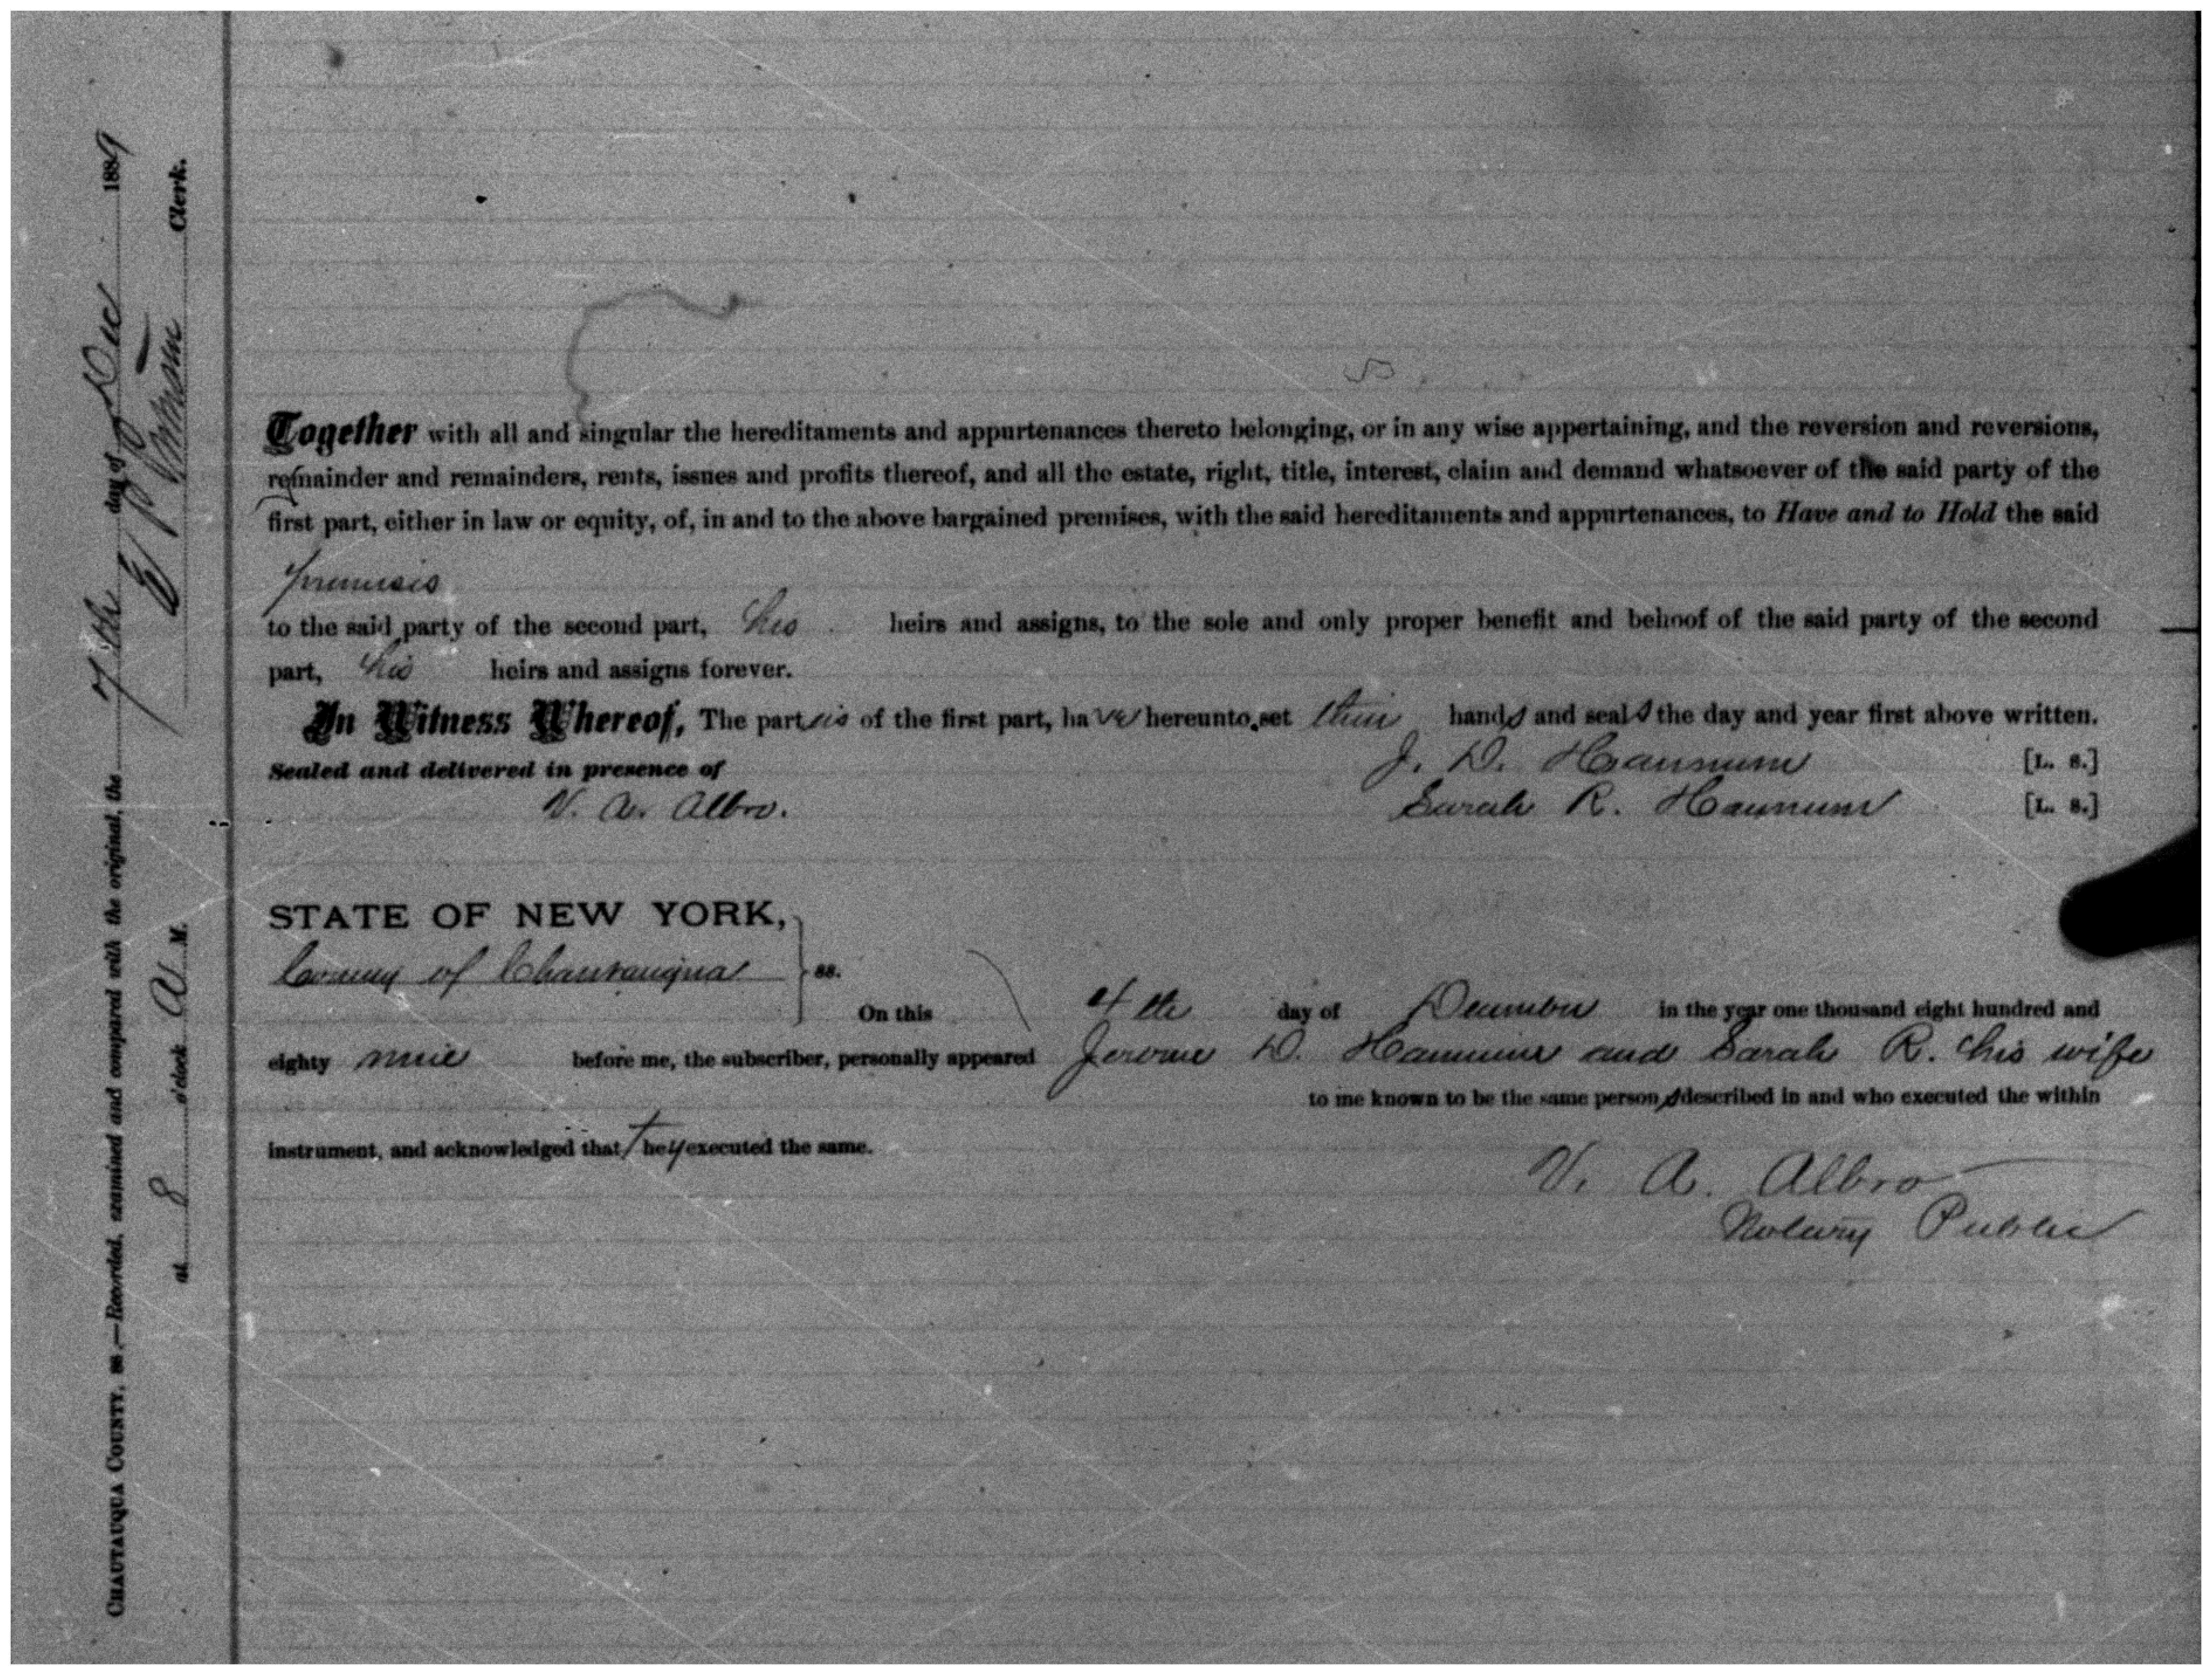 CHAUTAUQUA COUNTY, ss.—Recorded, examined and compared with the original, the 7th day of Dec 1889
at 8 o'clock A M. Clerk.
Together with all and singular the hereditaments and appurtenances thereto belonging, or in any wise appertaining, and the reversion and reversions,
remainder and remainders, rents, issues and profits thereof, and all the estate, right, title, interest, claim and demand whatsoever of the said party of the
first part, either in law or equity, of, in and to the above bargained premises, with the said hereditaments and appurtenances, to Have and to Hold the said
premises
to the said party of the second part, his heirs and assigns, to the sole and only proper benefit and behoof of the said party of the second
part, his heirs and assigns forever.
In Witness Whereof, The parties of the first part, have hereunto set their hands and seals the day and year first above written.
J. D. Hannum [L. S.]
Sealed and delivered in presence of
V. A. Albro. Sarah R. Hannum [L. S.]
STATE OF NEW YORK,
County of Chautauqua ss.
On this 4th day of December in the year one thousand eight hundred and
eighty nine before me, the subscriber, personally appeared Jerome D. Hannum and Sarah R. his wife
to me known to be the same persons described in and who executed the within
instrument, and acknowledged that they executed the same.
V. A. Albro
Notary Public